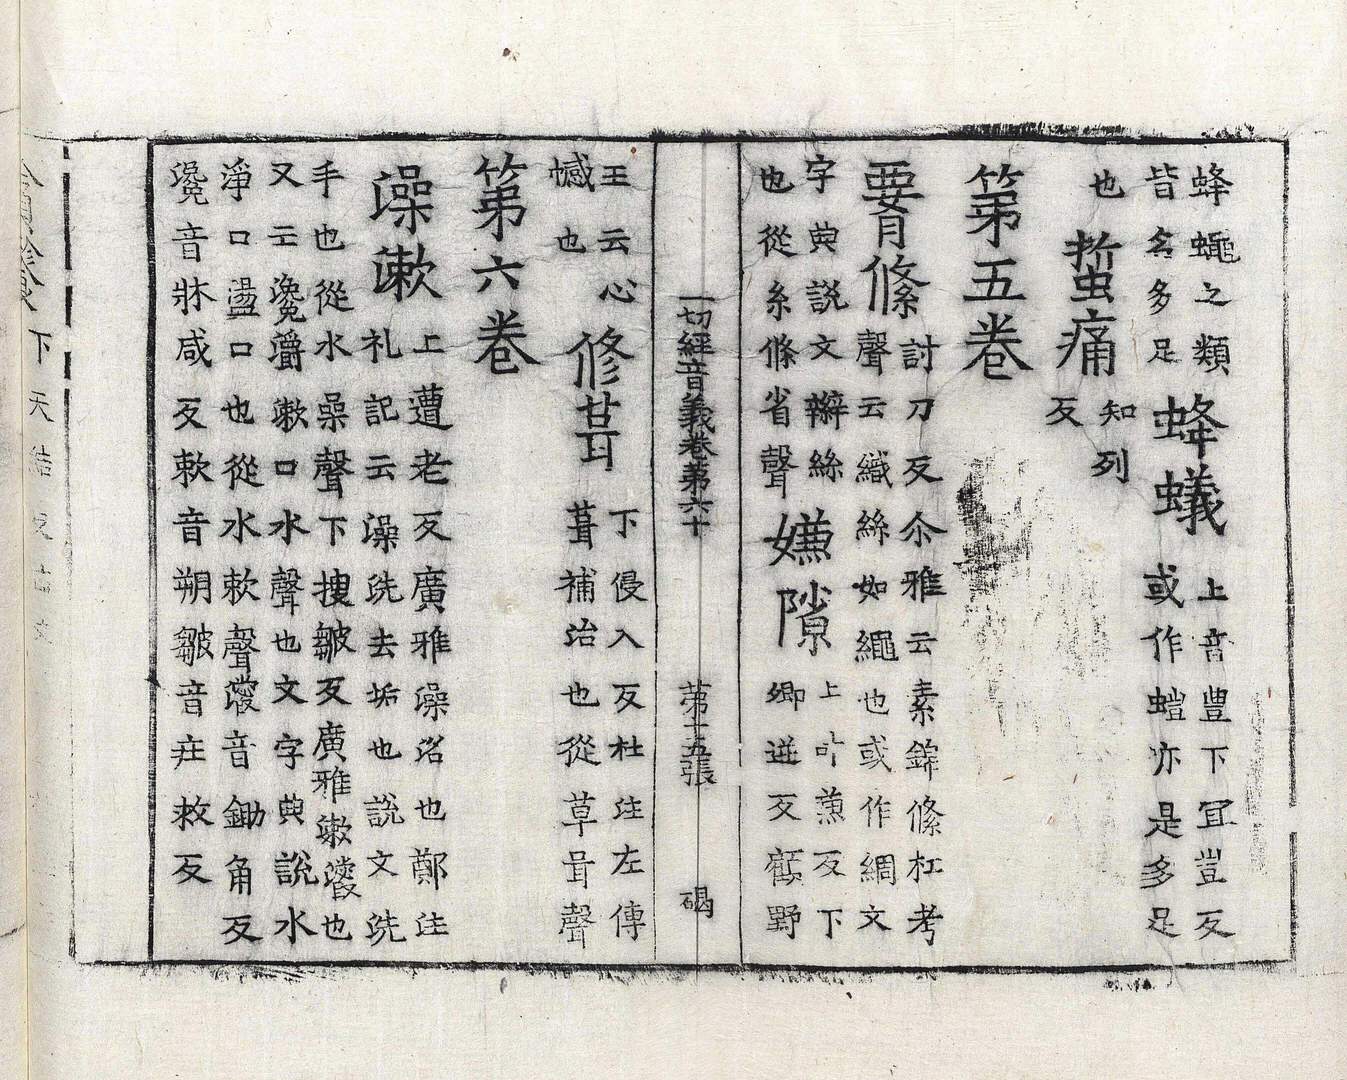 蜂蠅之類
皆名多足
也
蜇痛
知列
反
蜂蟻
上音豊下冝豈反
或作螘亦是多足
第五卷
𦝫絛
討刀反尒雅云素錦絛杠考
聲云織絲如繩也或作綢文
字典說文辮絲
也從糸條省聲
嫌隙
上叶蒹反下
卿逆反顧野
一切經音義卷第六十
第十五張
碣
王云心
憾也
修葺
下侵入反杜注左傳
葺補治也從草咠聲
第六卷
澡漱
上遭老反廣雅澡治也鄭注
礼記云澡洗去垢也說文洗
手也從水喿聲下搜皺反廣雅漱也
又云漱口水聲也文字典說水
淨口盪口也從水欶聲音鋤角反
音牀咸反欶音朔皺音庄救反
下天結反